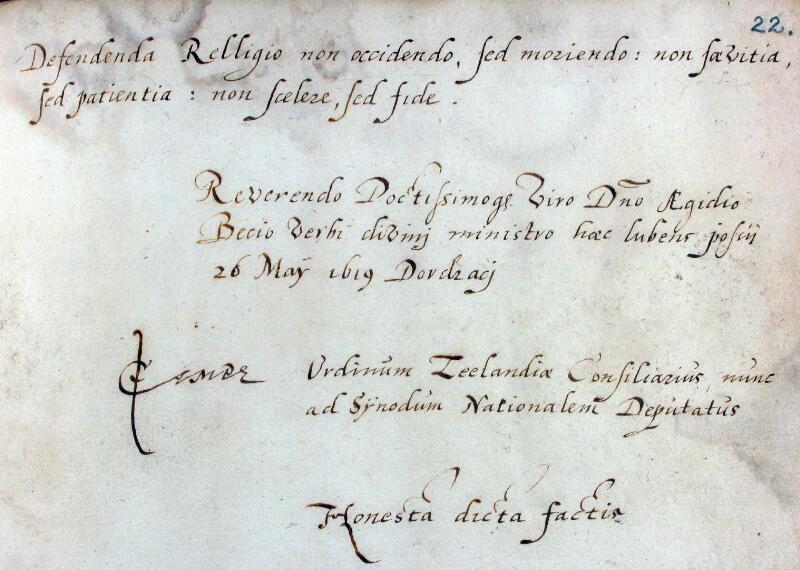 22.
Defendenda Relligio non occidendo, sed moriendo: non sævitia,
sed patientia: non scelere, sed fide.
Reverendo Doctissimoq; Viro Dn̄o Ægidio
Becio Verbi divinj ministro hæc lubens posuj
26 Maÿ 1619 Dordracj
Ordinum Zeelandiæ Consiliarius, nunc
ad Sÿnodum Nationalem Deputatus
Honesta dicta factis